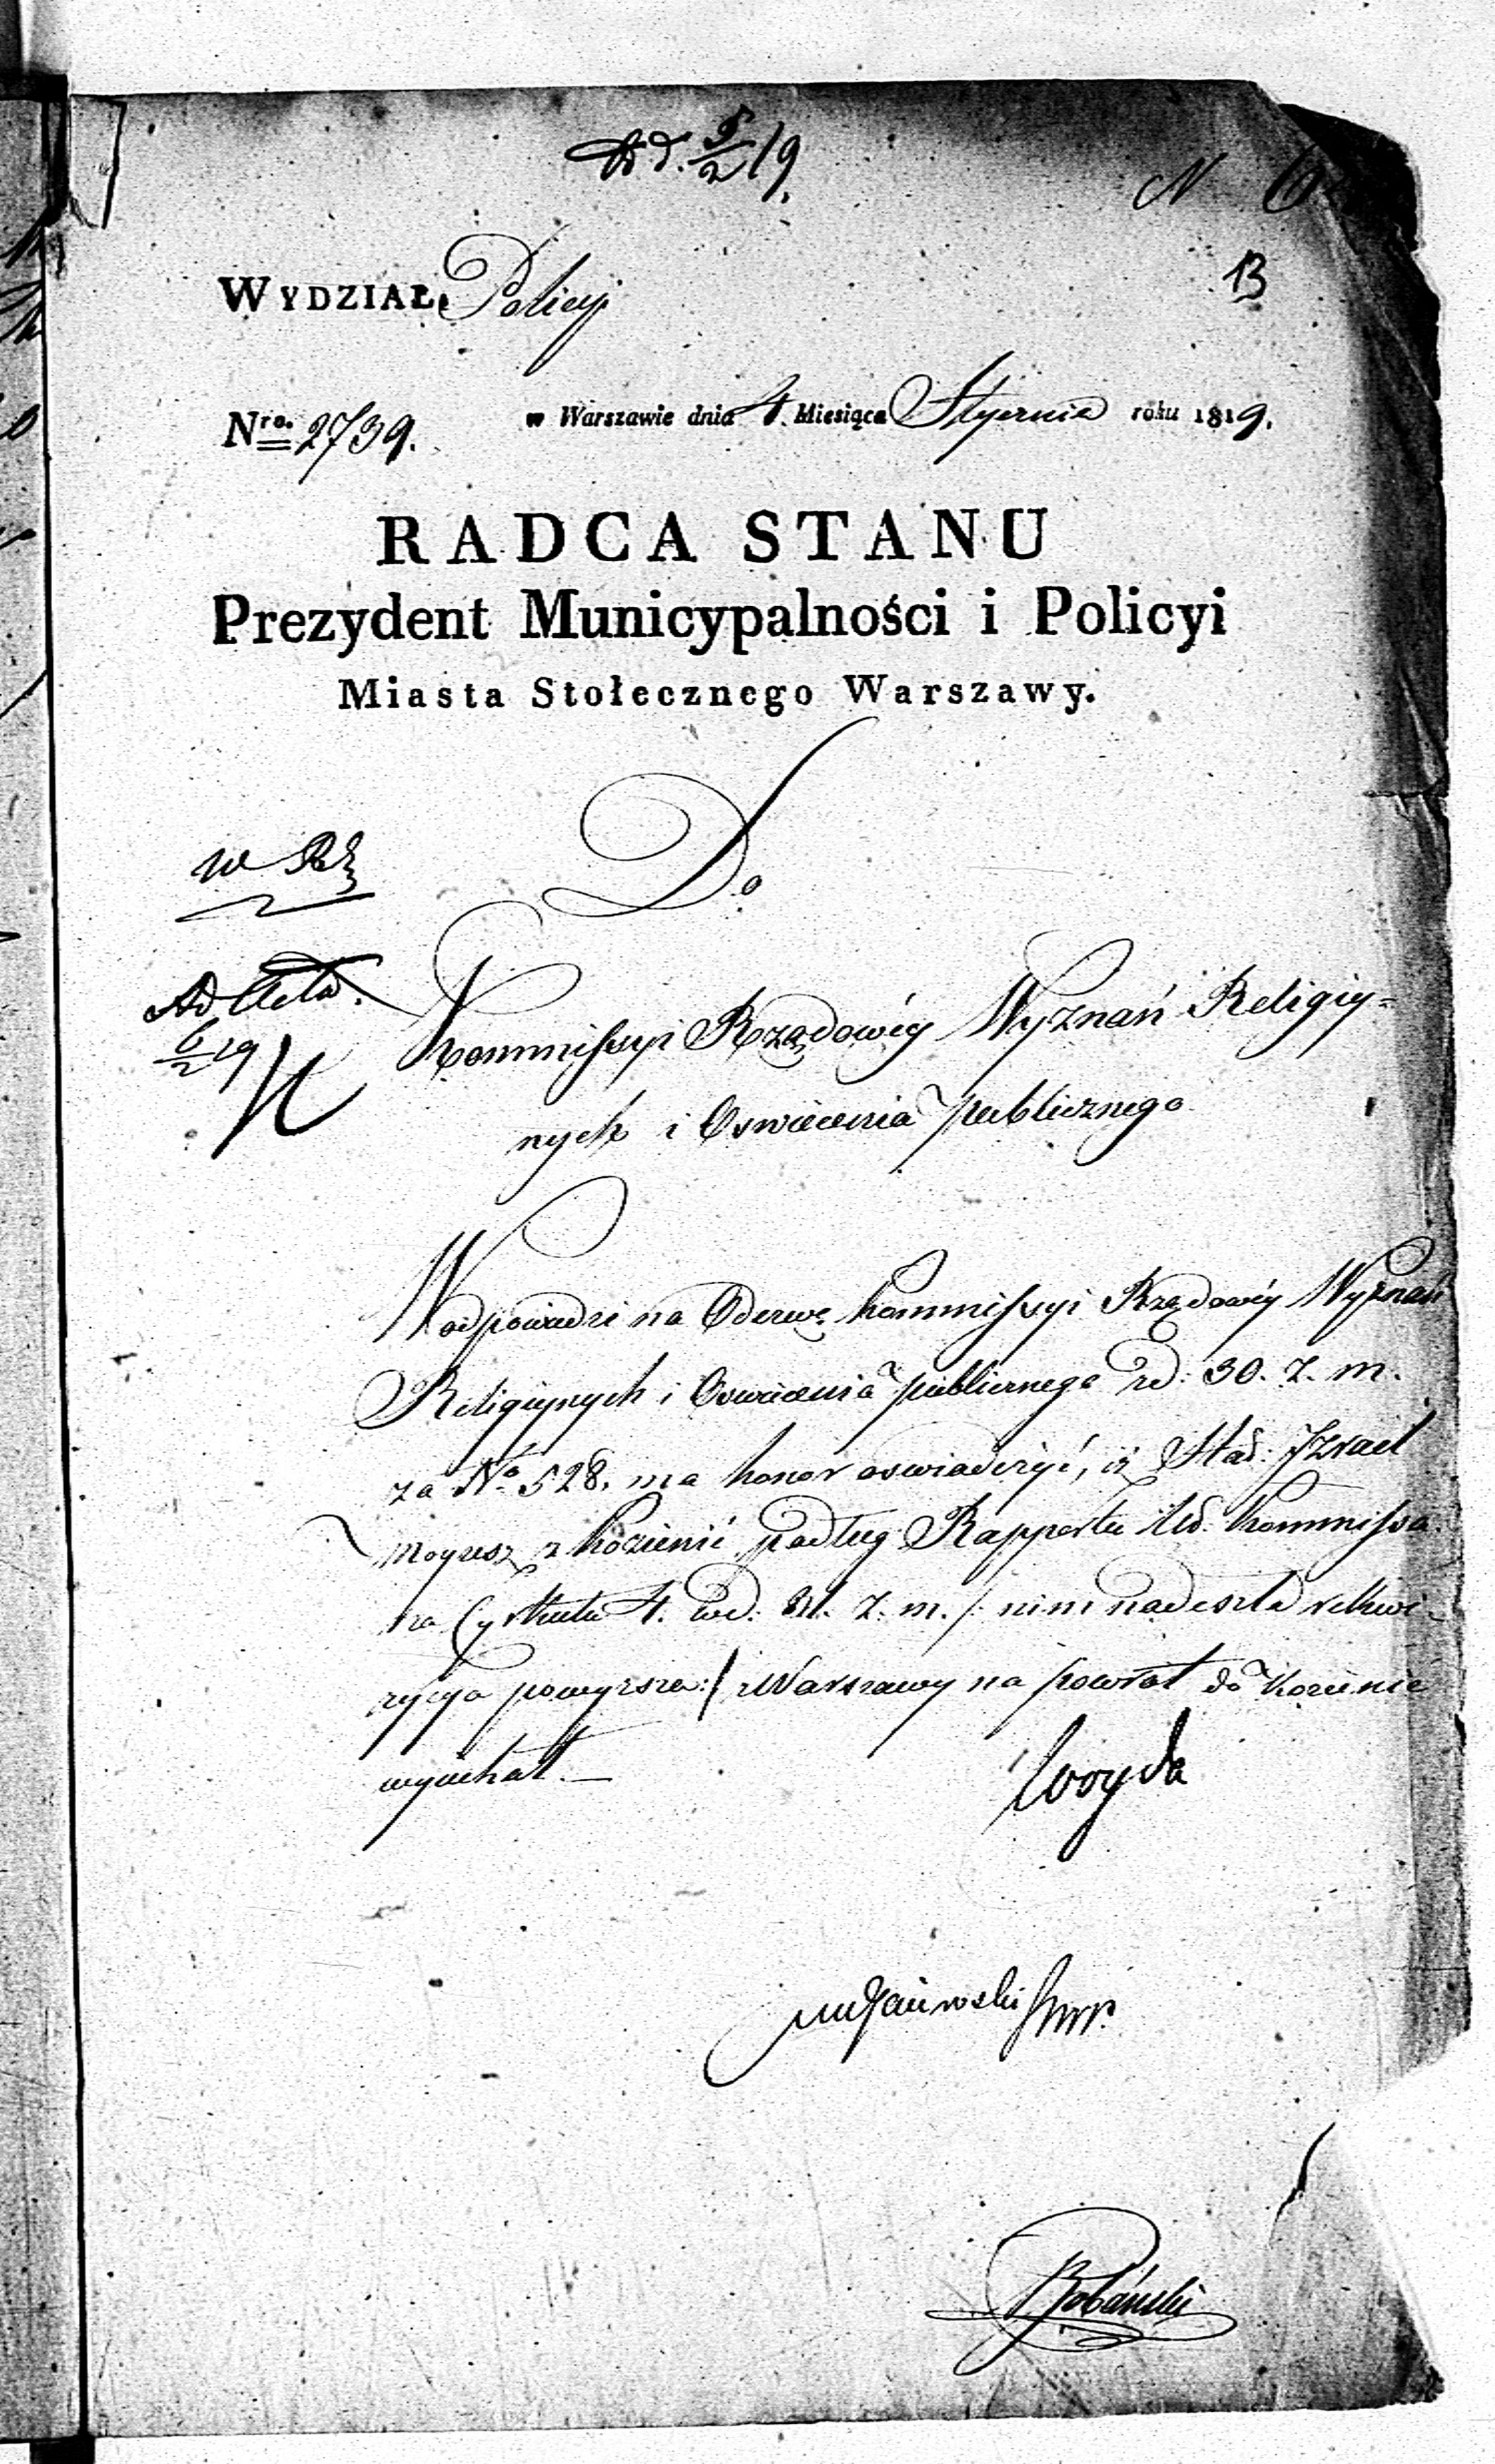 5/2 19.
N
13
WYDZIAŁ Policyi
Nro. 2739. w Warszawie dnia 4. Miesiąca Stycznia roku 1819.
RADCA STANU
Prezydent Municypalności i Policyi
Miasta Stołecznego Warszawy.
Do
Ad Acta.
6/2 19
Kommissyi Rządowéy Wyznań Religiy=
nych i Oswiecenia publicznego
W odpowiedzi na Odezwę Kommissyi Rządowéy Wyznań
Religiynych i Oswiecenia publicznego de: 30. z. m.
za No 528. ma honor oswiadczyć, iż Star: Izrael
Moyzesz z Kozienic podług Rapportu Kommissa
rza Cyrkułu 4. de: 31. z. m. /: nim nadeszła rekwi
zycya powyzsza :/ z Warszawy na powrót do Kozienic
wyiechał.
Woyda